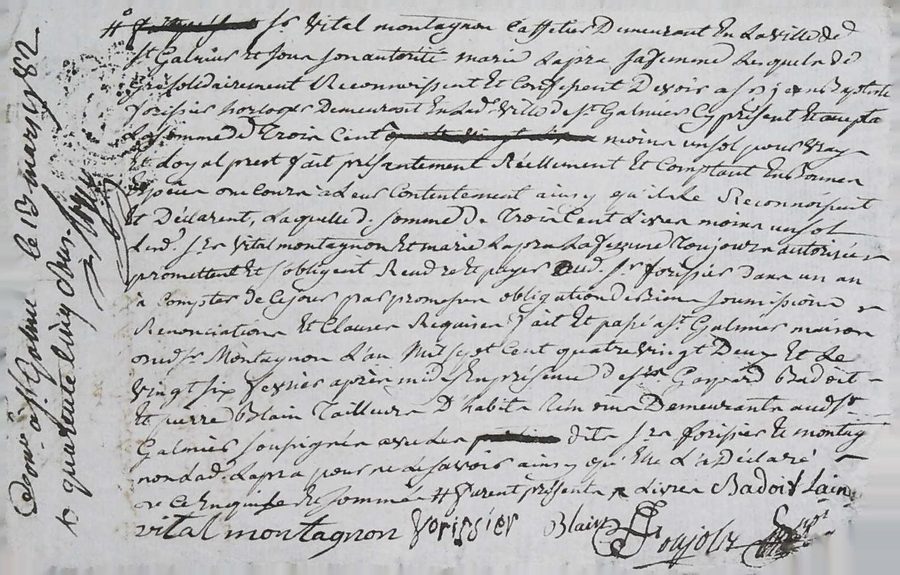 Sr Vital montagnon Caffetier Demeurant En La ville de
St Galmier Et sous son autorité marie Lapra sa femme Lesquels de
gré solidairement Reconnoissent Et Confessent Devoir a sr jean Baptiste
forissier horloger Demeurant En Lad. ville de St Galmier Cy présent Et acceptant
La somme de Trois Cent moins un sol pour vray
Et Loyal prest fait présentement Réellement Et Comptant En
ayant Cours a Leur Contentement ainsy qu'ils Le Reconnoissent
Et Déclarent, Laquelle d. somme de Trois Cent Livres moins un sol
Led. sr vital montagnon Et marie Lapra La femme Toujours autorisée
promettent Et sobligent Rendre Et payer aud. sr forissier dans un an
a Compter de Ce jour par promesse obligation de Biens soumissions
Renonciations Et Clauses Requises fait Et passé a St Galmier maison
dud. sr Montagnon L'an Mil sept Cent quatre vingt Deux Et Le
vingt six fevrier après midy En présence de sr Gaspard Badoit
Et pierre Blain Tailleurs D'habits Demeurants aud. St
Galmier soussignés avec Les dits srs forissier Et montag
non Lad. Lapra pour ne Le savoir ainsy qu'elle L'a Déclaré
de Ce Enquise Et sommée # furent présents Livres Badoit
vital montagnon forissier Blain Poujols
Conlé a St Galmier le 13 mars 1782
R quarente cinq sous.